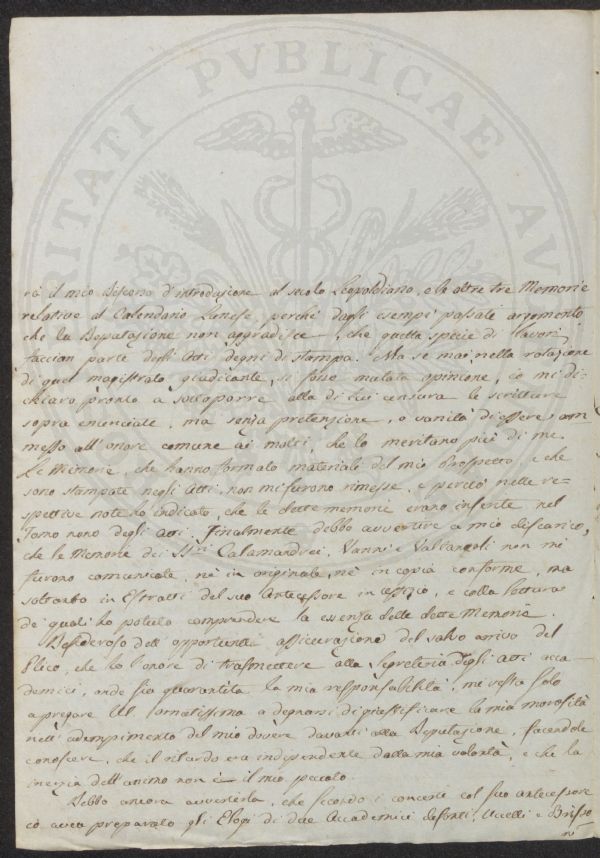 PROSPERITATI PVBLICAE AV
rò il mio Discorso d'introduzione al secolo Leopoldiano, e le altre tre Memorie
relative al Calendario Lunese, perchè dagli esempi passati argomento
che la Deputazione non aggradisce, che questa specie di lavori
faccian parte degli Atti degni di stampa. Ma se mai nella rotazione
di quel magistrato giudicante, si fosse mutata opinione, io mi di-
chiaro pronto a sottoporre alla di cui censura le scritture
sopra enunciate, ma senza pretensione, o vanità di essere am
messo all'onore comune ai molti, che lo meritano più di me.
Le Memorie, che hanno formato materiale del mio Prospetto, e che
sono stampate negli Atti, non mi furono rimesse, e perciò nelle re-
spettive note ho indicato, che le dette memorie erano inserite nel
Tomo nono degli atti. Finalmente debbo avvertire a mio discarico,
che le Memorie dei SSri Calamandrei, Vanni e non mi
furono comunicate, nè in originale, nè in copia conforme, ma
soltanto in Estratti del suo Antecessore in uffizio, e colla lettura
de' quali ho potuto comprendere la essenza delle dette Memorie.
Desideroso dell'opportuna assicurazione del salvo arrivo del
Plico, che ho l'onore di trasmettere alla Segreteria degli atti acca-
demici, onde sia guarantita la mia responsabilità, mi resta solo
a pregare VS ornatissima a degnarsi di giustificare la mia morosità
nell'adempimento del mio dovere davanti alla Deputazione, facendole
conoscere, che il ritardo era independente dalla mia volontà, e che la
inerzia dell'animo non è il mio peccato.
Debbo ancora avvertirla, che secondo i concerti col suo antecessore
io avea preparato gli Elogi di due Accademici defonti, Uccelli e